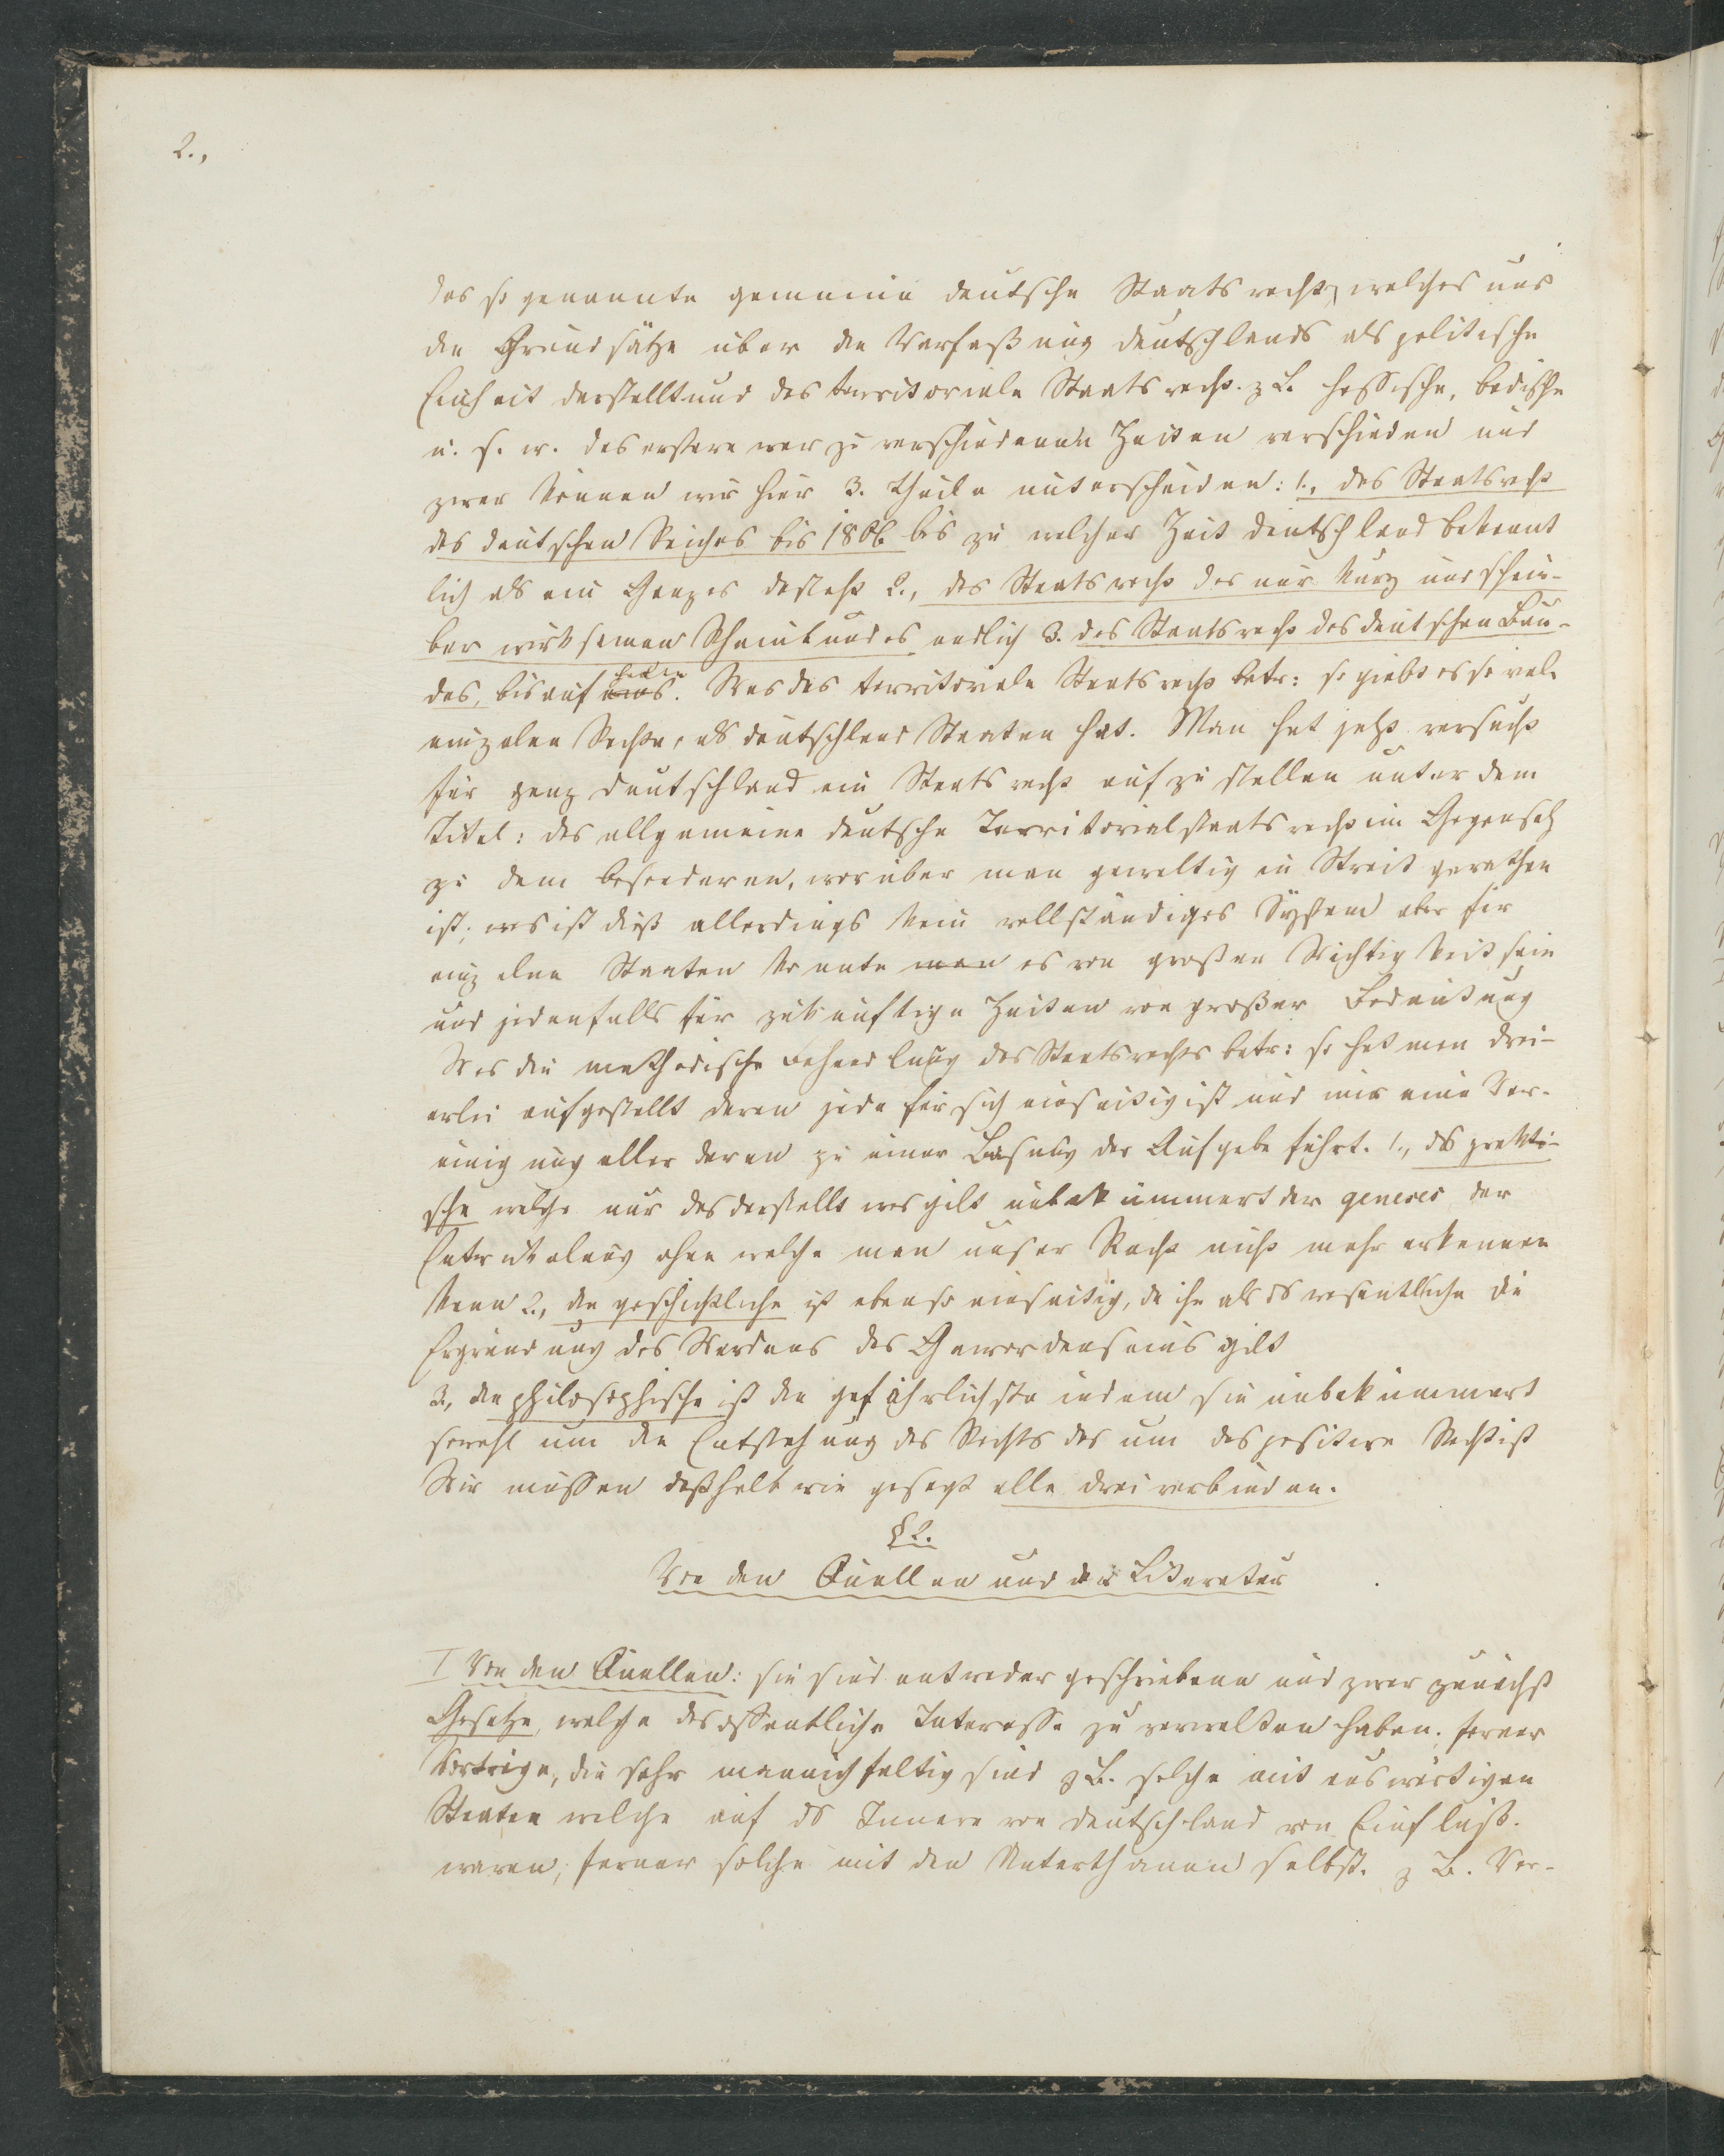 2.,
das so genannte gemeine deutsche Staatsrecht, welches uns
die Grundsätze über die Verfaßung Deutschlands als politische
Einheit darstellt und das territoriale Staatsrecht z B. hessische, badische
u. s. w. das erstere war zu verschiedenen Zeiten verschieden und
zwar können wir hier 3. Theile unterscheiden: 1., das Staatsrecht
des deutschen Reiches bis 1806 bis zu welcher Zeit Deutschland bekannt
lich als ein Ganzes dasteht 2., das Staatsrecht des nur kurz und schein-
bar wirksamen Rheinbundes endlich 3. das Staatsrecht des deutschen Bun-
des, bis auf uns. Was das territoriale Staatsrecht betr: so giebt es so viele
einzelne Rechte, als Deutschland Staaten hat. Man hat jetzt versucht
für ganz Deutschland ein Staatsrecht aufzustellen unter dem
Titel: das allgemeine deutsche Territorialstaatsrecht im Gegensatz
zu dem besonderen, worüber man gewaltig in Streit gerathen
ist; es ist dieß allerdings kein vollständiges System aber für
einzelne Staaten konnte man es von großer Wichtigkeit sein
und jedenfalls für zukünftige Zeiten von großer Bedeutung
Was die methodische Behandlung des Staatsrechts betr: so hat man drei-
erlei aufgestellt deren jede für sich einseitig ist und nur eine Ver-
einigung aller deren zu einer Lösung der Aufgabe führt. 1., ds prakti-
sche welche nur das darstellt was gilt unbekümmert der geneses der
Entwicklung ohne welche man unser Recht nicht mehr erkennen
kann 2., die geschichtliche ist ebenso einseitig, da ihr als ds wesentliche die
Ergründung des Werdens des Gewordenseins gilt
3., die philosophische ist die gefährlichste indem sie unbekümmert
sowohl um die Entstehung des Rechts als um das positive Recht ist
Wir müssen deßhalb wie gesagt alle drei verbinden.
§ 2.
Von den Quellen und der Literatur
I Von den Quellen: sie sind entweder geschriebene und zwar zunächst
Gesetze, welche das öffentliche Interesse zu verwalten haben; ferner
Verträge, die sehr mannichfaltig sind z B. solche mit auswärtigen
Staaten welche auf ds Innere von Deutschland von Einfluß.
waren; ferner solche mit den Unterthanen selbst. z B. Ver-